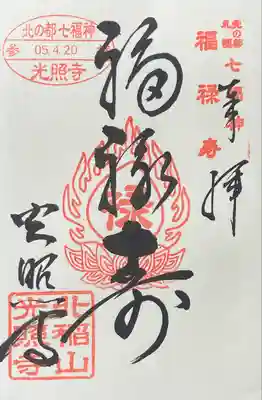 奉拝
北の都
札幌
七福神
福禄寿
福禄寿
禄
北の都七福神
参 05.4.20 拝
光照寺
光照寺
北稲山
光照寺